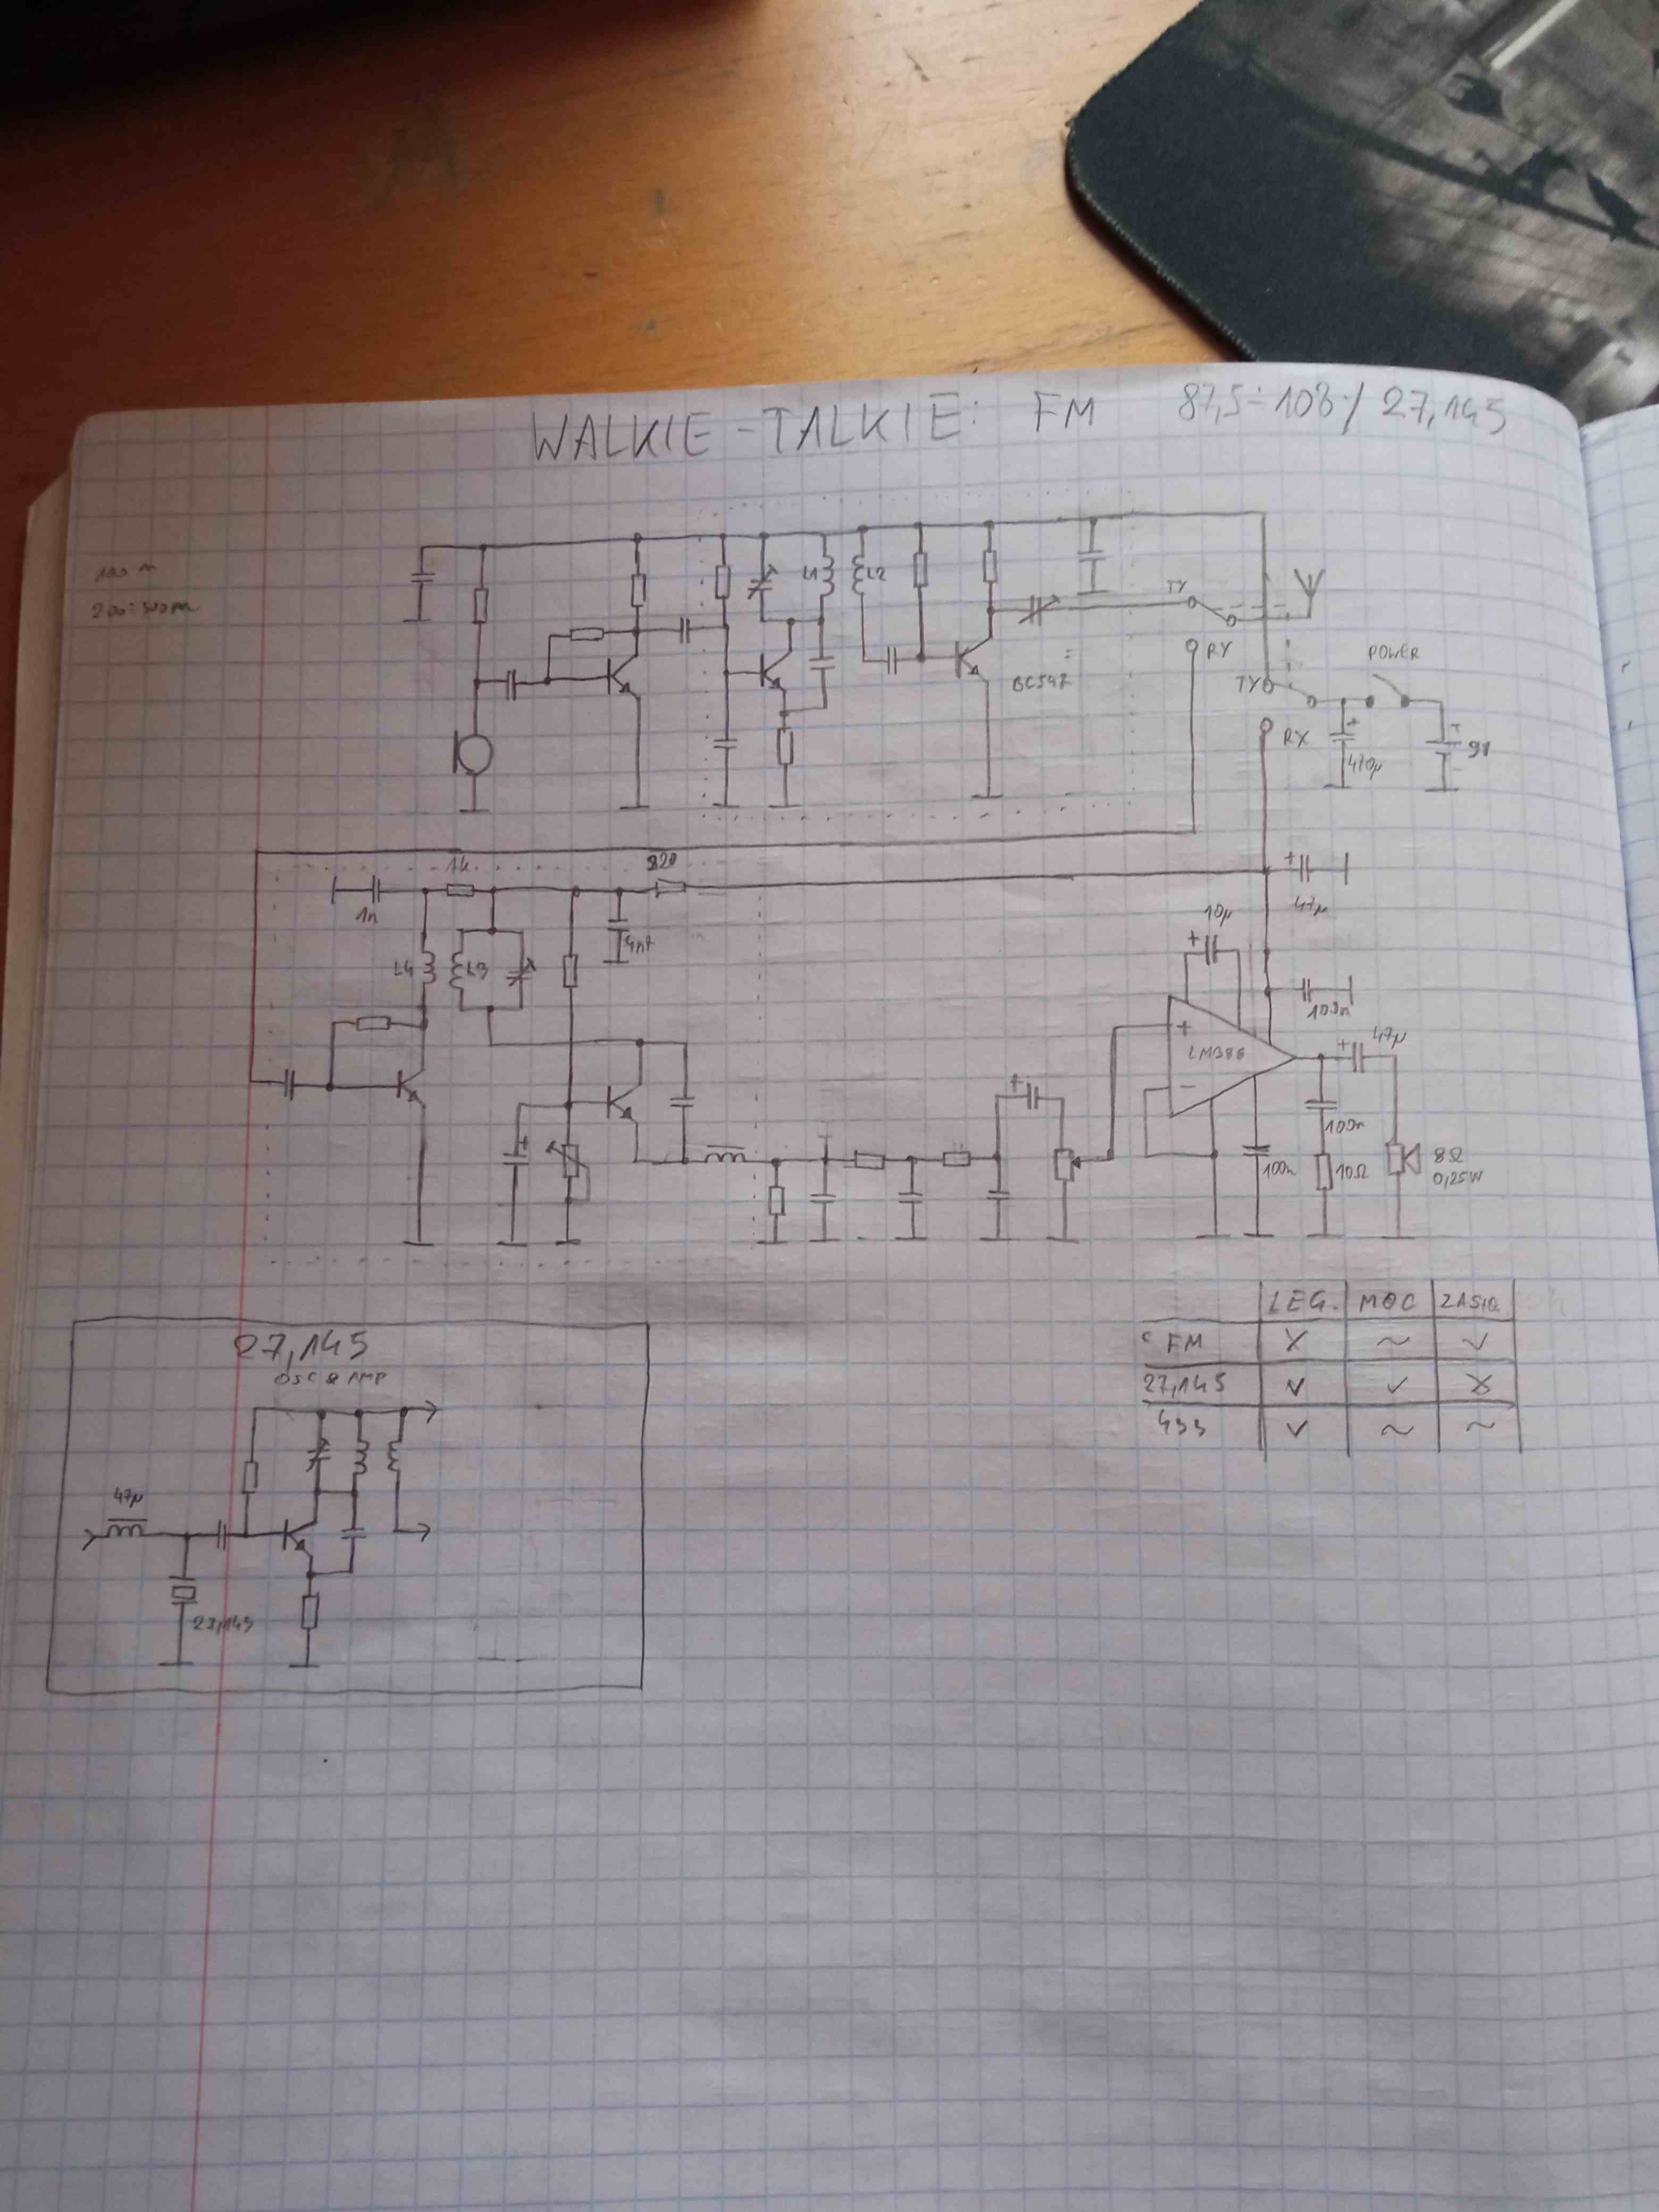 WALKIE-TALKIE: FM 87,5÷108 / 27,145
100 m
200÷300m
L1
L2
TX
RX
BC547
TX
POWER
RX
+
470µ
+
9V
1n
1k
820
4n7
+
47µ
L4
L3
10µ
+
100n
+
LM386
-
+
47µ
100n
10Ω
100n
8Ω
0,25W
+
+
LEG. MOC ZASIĘ.
FM X ~ ✓
27,145 ✓ ✓ X
433 ✓ ~ ~
27,145
OSC & AMP
47µ